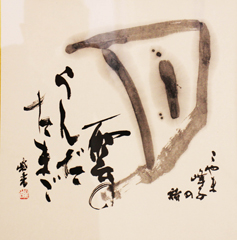 こやま
峰子
の
詩
月
雲の
うんだ
たまご